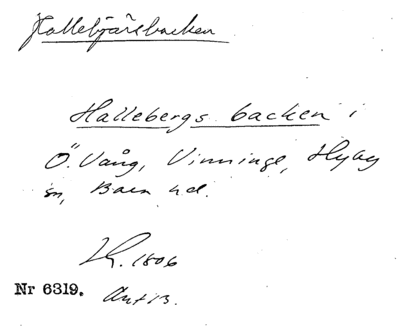 Hallebjärsbacken
Hallebergs backen i
Ö. Vång, Vinninge, Hyby
sn, Bara hd.
Lh. 1806
Nr 6319. Ant 13.